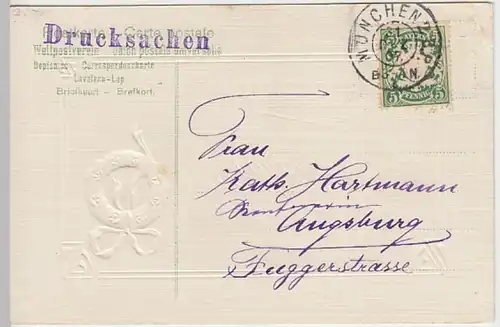 Postkarte — Carte postale
Drucksachen
Weltpostverein — Union postale universelle
Correspondenzkarte
Levelezö-Lap
Briefkaart — Brefkort
MÜNCHEN
5 PFENNIG 5
Frau
Kath. Hartmann
Augsburg
Fuggerstrasse